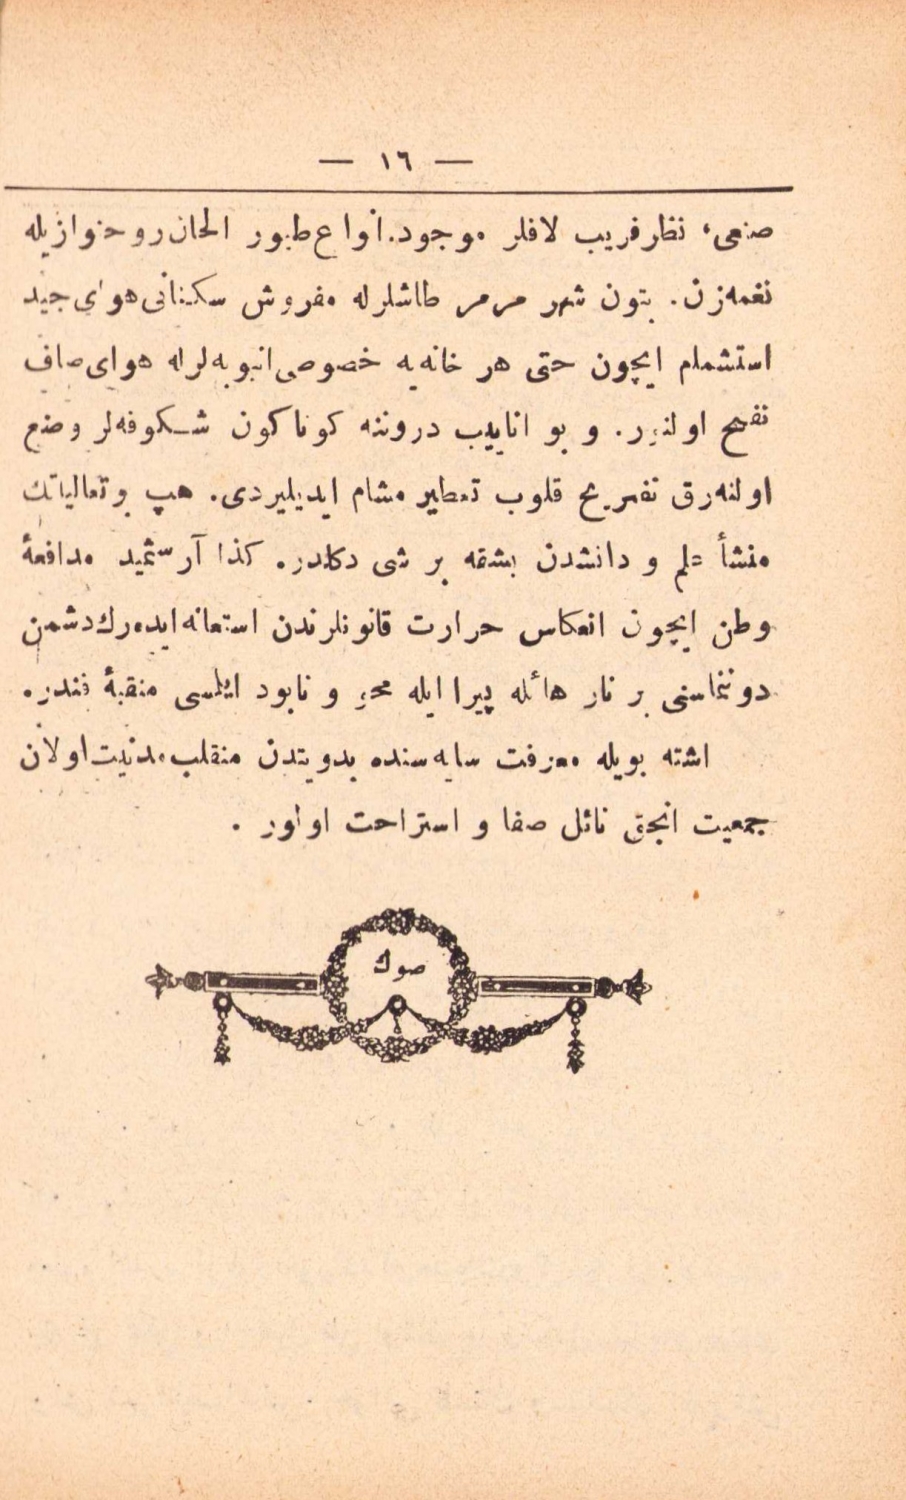 — ١٦ —
صنعی، نظرفریب لافلر موجود. انواع طیور الحان روحنوازیله
نغمه‌زن. بتون شهر مرمر طاشلرله مفروش سکنانی هوای جید
استشمام ایچون حتی هر خانه‌یه خصوصی انبوبه‌لرله هوای صاف
او لنور. و بو انابیب دروننه کوناکون شکوفه‌لر وضع
اولنه‌رق تفریح قلوب تعطیر مشام ایدیلیردی. هپ بو تعالیاتك
منشأ علم و دانشدن بشقه بر شی دکلدر. کذا آرشمید مدافعهٔ
وطن ایچون انعکاس حرارت قانونلرندن استعانه ایده‌رك دشمن
دوننماسنی بر نار هائله پیرا ایله محو و نابود ایلمسی منقبهٔ فندر.
اشته بویله معرفت سایه‌سنده بدویتدن منقلب مدنیت اولان
جمعیت انجق نائل صفا و استراحت اولور .
صوك